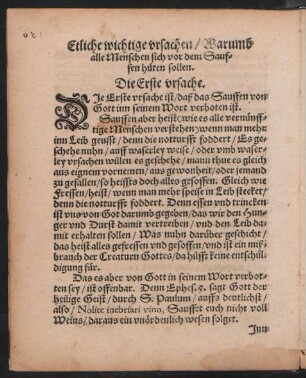 Etliche wichtige vrsachen / Warumb
alle Menschen sich vor dem Sauf-
fen hüten sollen.
Die Erste vrsache.
DIe Erste vrsache ist / daß das Sauffen von
Gott inn seinem Wort verboten ist.
Sauffen aber heist / wie es alle vernünff-
tige Menschen verstehen / wenn man mehr
inn Leib geust / denn die notturfft foddert / Es ge-
schehe nuhn / auff waserley weise / oder vmb waser-
ley vrsachen willen es geschehe / mann thue es gleich
aus eignem vornemen / aus gewonheit / oder jemand
zu gefallen / so heissts doch alles gesoffen. Gleich wie
Fressen / heist / wenn man mehr speise in Leib stecket /
denn die notturfft foddert. Denn essen vnd trincken
ist vns von Got darumb gegeben / das wir den Hun-
ger vnd Durst damit vertreiben / vnd den Leib da-
mit erhalten sollen / Was nuhn darüber geschicht /
das heist alles gefressen vnd gesoffen / vnd ist ein miß-
brauch der Creaturn Gottes / da hilfft keine entschül-
digung für.
Das es aber von Gott in seinem Wort verbot-
ten sey / ist offenbar. Denn Ephes. 5. sagt Gott der
heilige Geist / durch S. Paulum / auffs deutlichst /
also / Nolite inebriari vino, Sauffet euch nicht voll
Weins / daraus ein vnördenlich wesen folget.
Jun